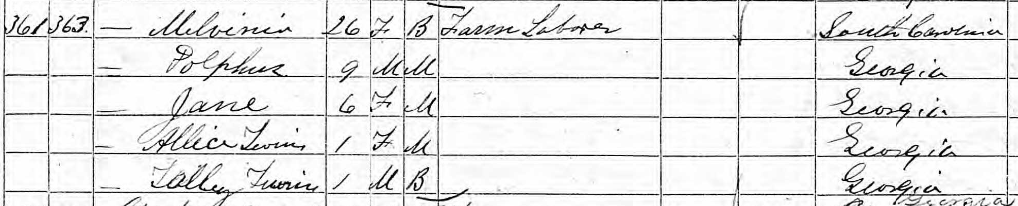 361 363. — Melvinia 26 F B Farm Laborer South Carolina
— Dolphus 9 M M Georgia
— Jane 6 F M Georgia
— Allice Twins 1 F M Georgia
— Talley Twins 1 M B Georgia
Georgia